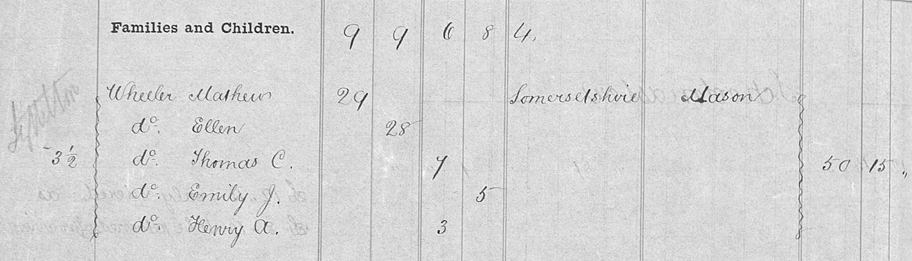 Families and Children. 9 9 6 8 4.
Wheeler Mathew 29 Somersetshire Mason
do. Ellen 28
3 1/2 do. Thomas C. 7 50 15 "
do. Emily J. 5
do. Henry A. 3